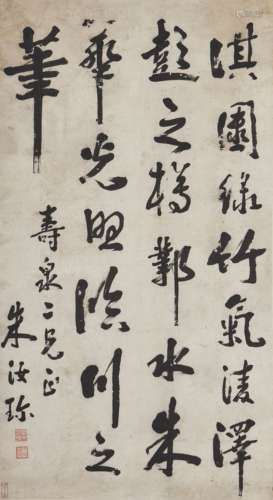 淇園綠竹氣淩澤
彭之樽鄴水朱
華光照臨川之
筆
壽泉二兄正
朱汝珍